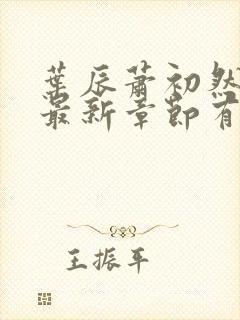 葉辰蕭初然
最新章節有
王振平